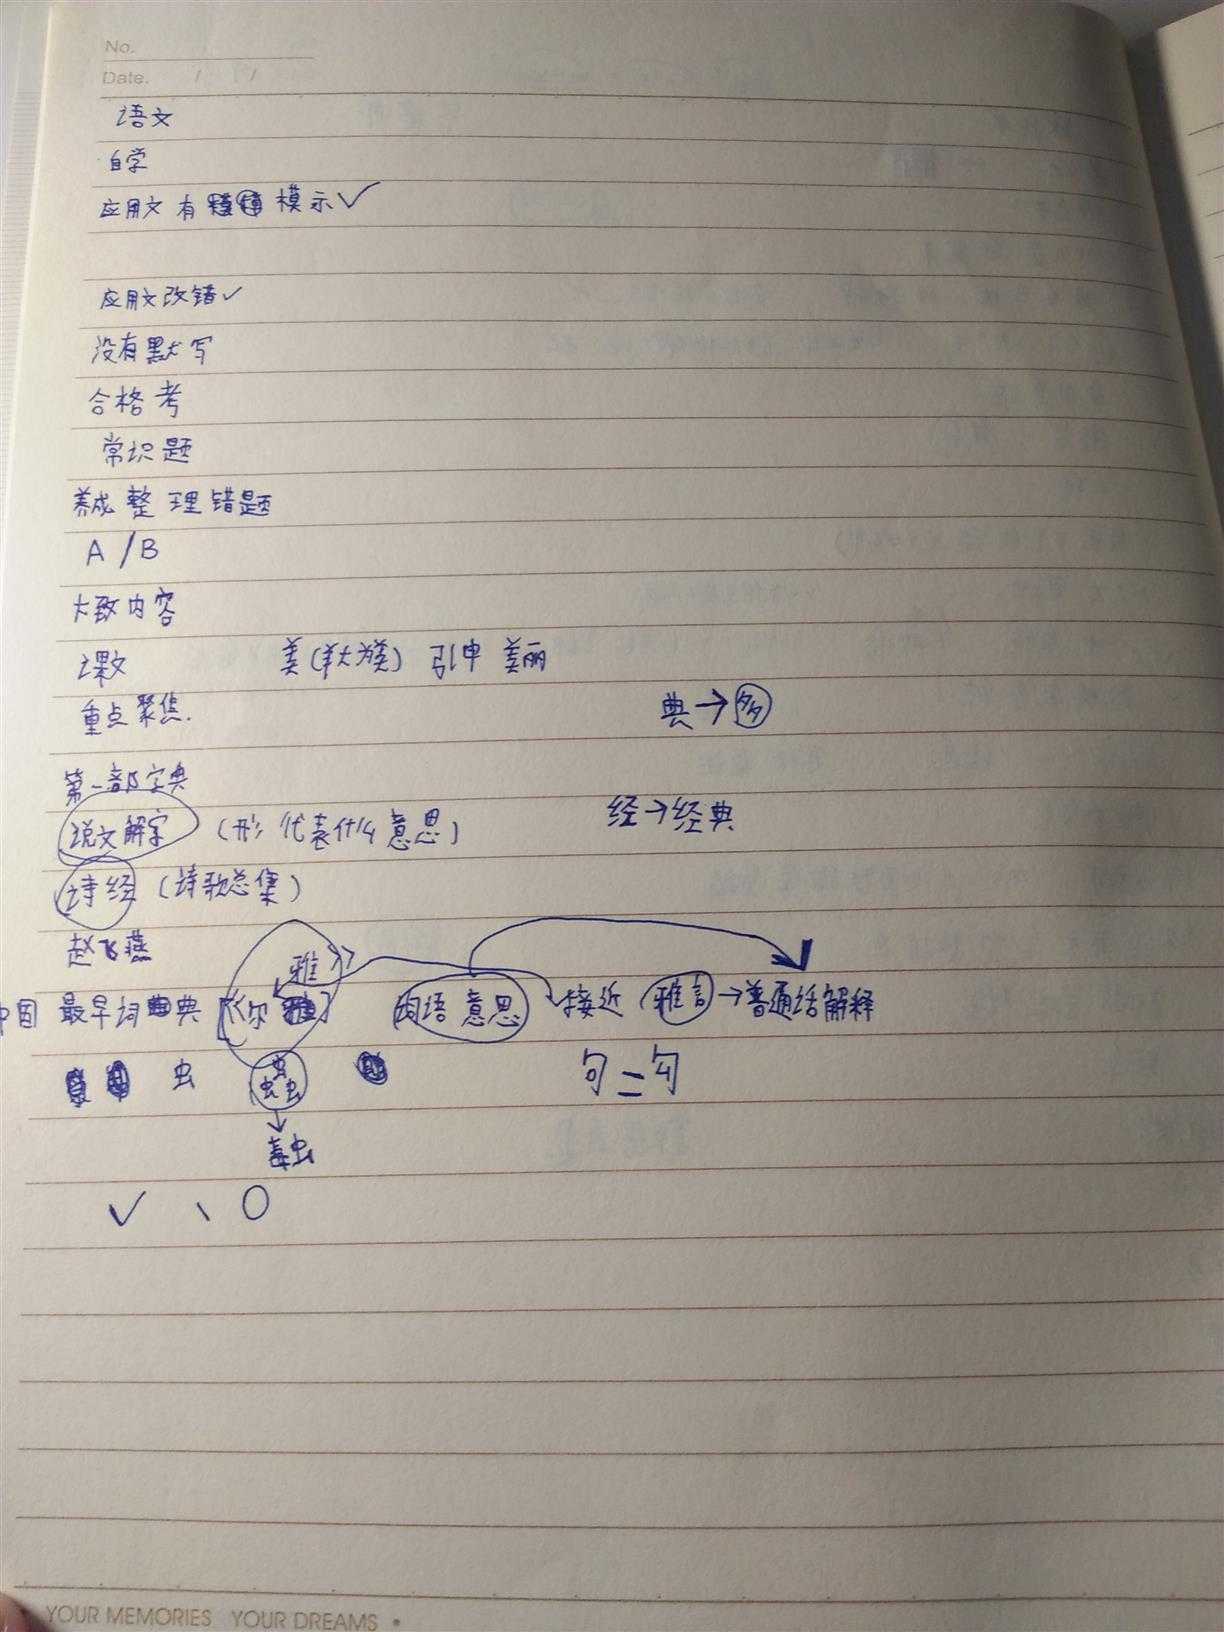 No.
Date. / /
语文
自学
应用文 有 模示✓
应用文改错✓
没有默写
合格考
常识题
养成 整理错题
A / B
大致内容
课文 美(羊大为美) 引申 美丽
重点聚焦.
典→多
第一部字典
说文解字 (形 代表什么意思)
经→经典
诗经 (诗歌总集)
赵飞燕
雅》
中国 最早词典 [《尔 ] 词语 意思 接近 雅言→普通话解释
虫 蟲 句=勾
↓
毒虫
✓ 、 O
YOUR MEMORIES YOUR DREAMS •